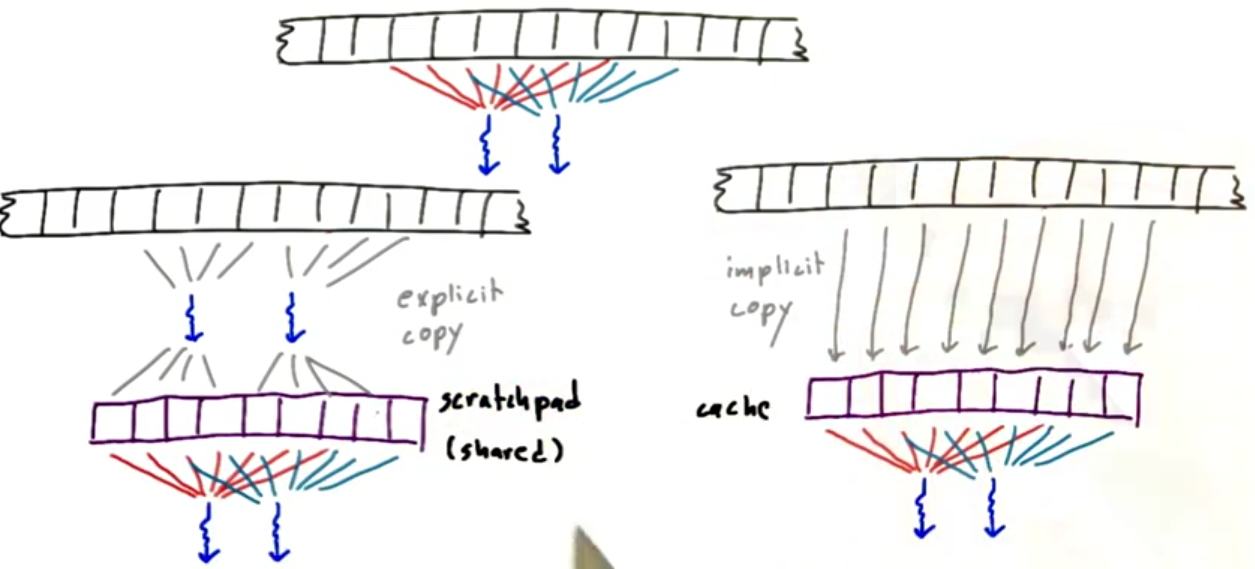 explicit
copy
scratchpad
(shared)
implicit
copy
cache